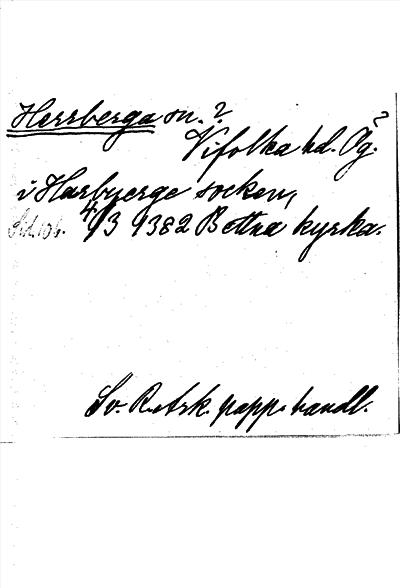 Herrberga sn.?
Vifolka hd. Ög.?
i Harbyerge socken,
4/3 1382 Bettna kyrka.
Sv. R. Ark. papp. handl.